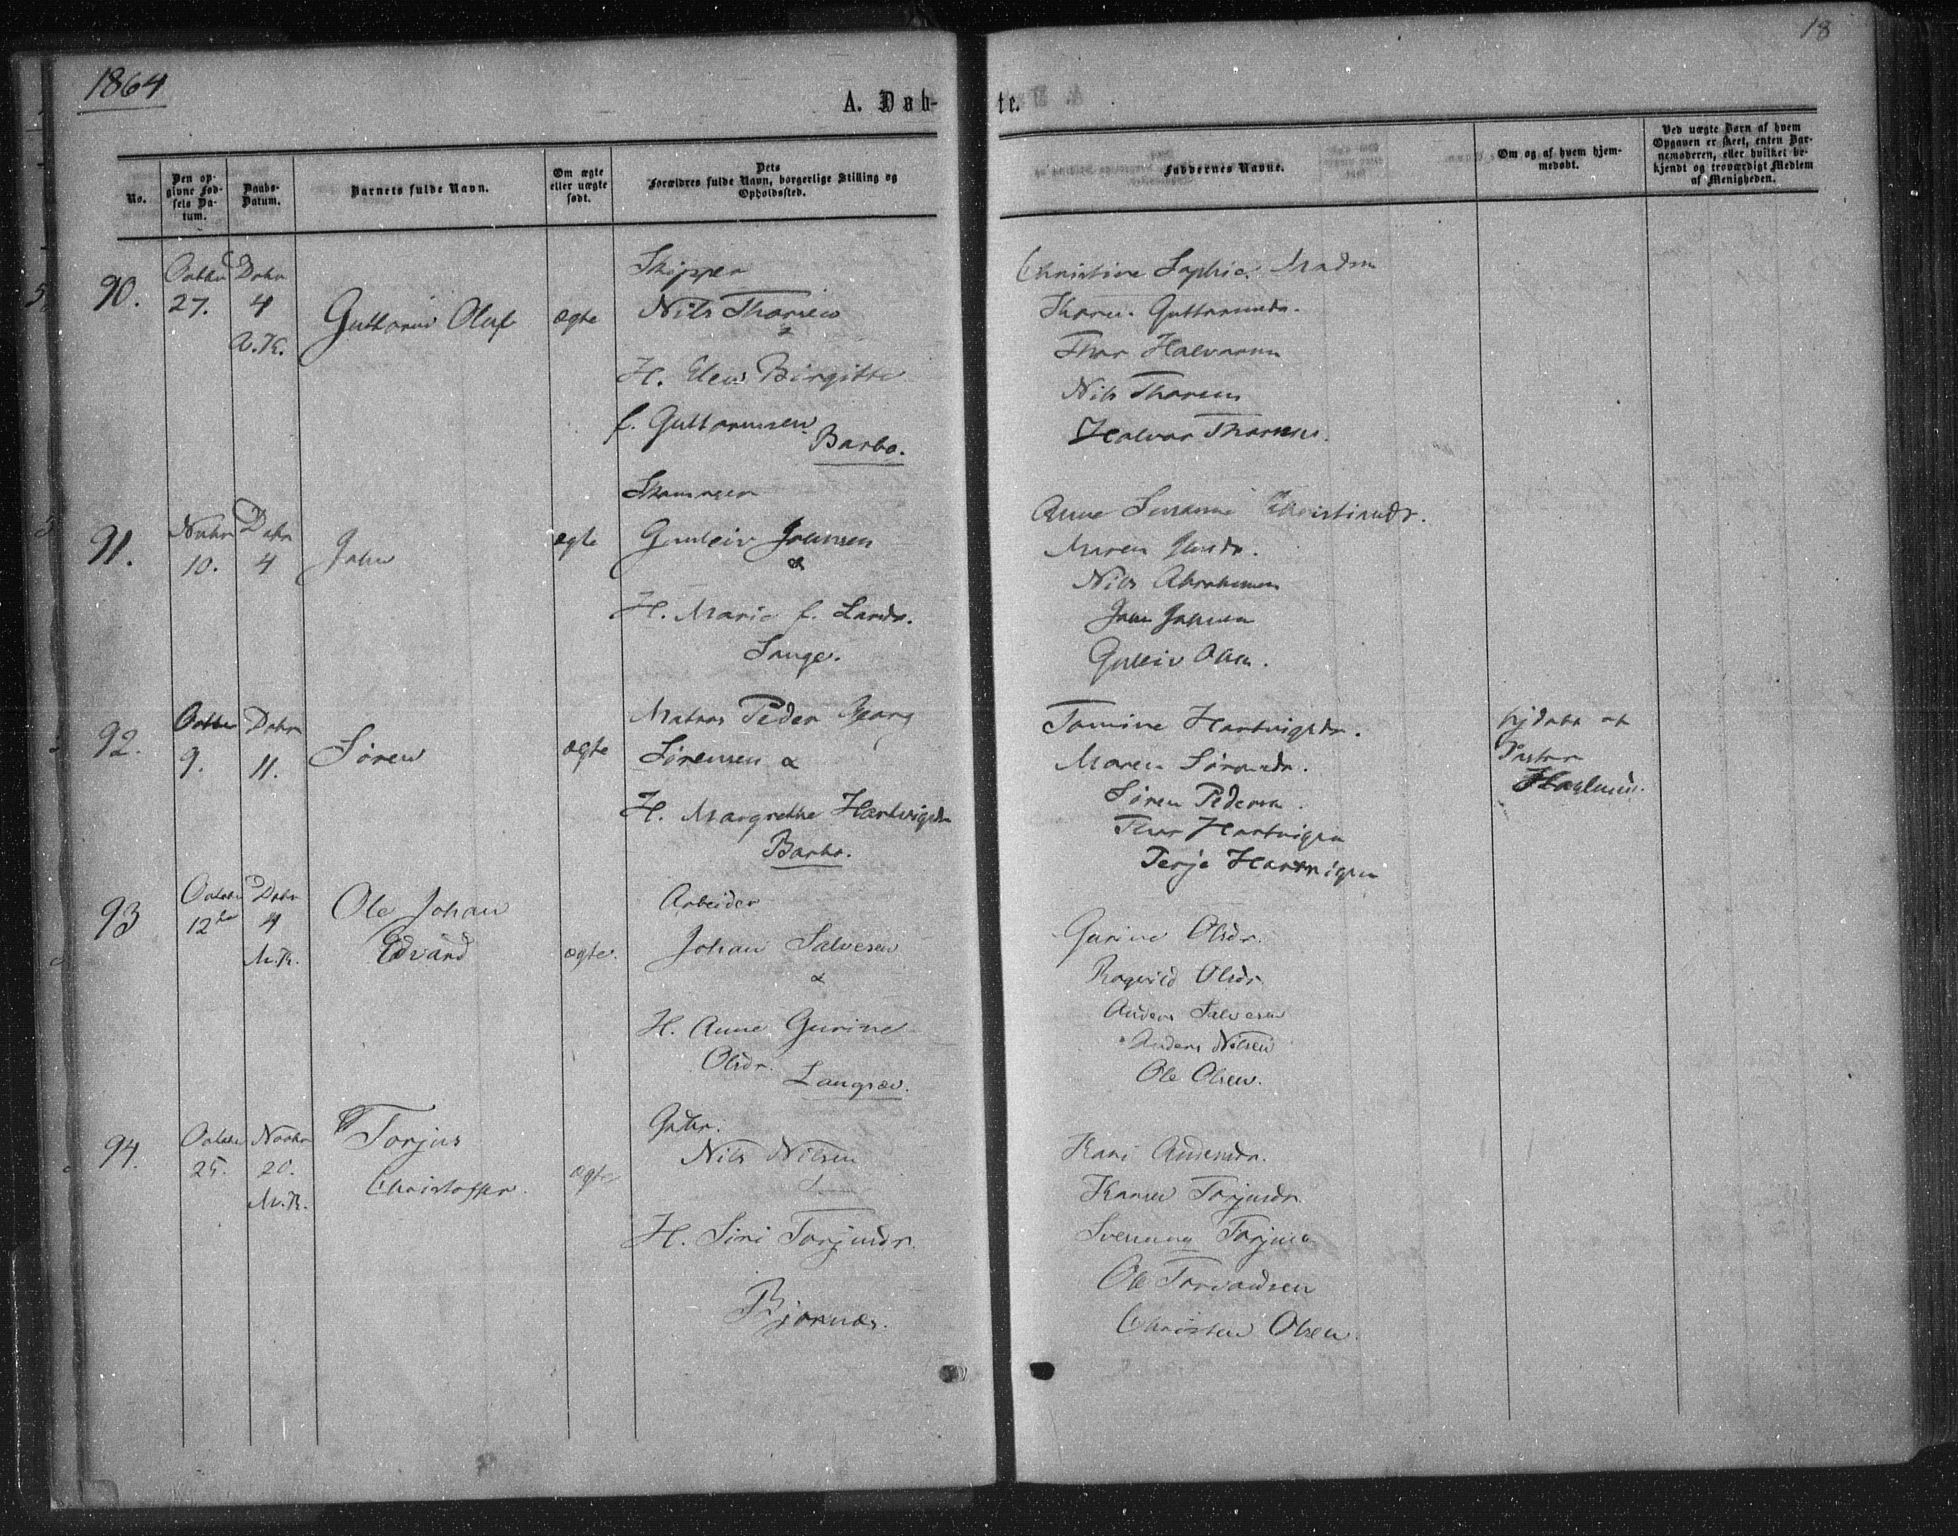 1864
18
A. Døb-
te.
No.
Den op-
givne Fød-
sels Da-
tum.
Daabs-
Datum.
Barnets fulde Navn.
Om ægte
eller uægte
født.
Dets
Forældres fulde Navn, borgerlige Stilling og
Opholdssted.
Faddernes Navne.
Om og af hvem hjem-
medøbt.
Ved uægte Børn af hvem
Opgaven er skeet, enten Bar-
nemoderen, eller hvilket be-
kjendt og troværdigt Medlem
af Menigheden.
90.
Octbr
27.
Dcbr
4
A.K.
Guttorm Oluf
ægte
Skipper
Nils Thorsen
&
H. Elen Birgitte
f. Guttormsen
Barbo.
Christine Sophie Madsn
Karen Guttormsdr.
Thor Halvorsen
Nils Thorsen
Halvor Thorsen.
91.
Novbr
10.
Decbr
4
John
ægte
Gunleiv Johnsen
&
H. Marie f. Larsdr.
Songe.
Anne Susanne Christiansdr.
Maren Jensdr.
Nils Abrahamsen
John Johnsen
Gulleiv Olsen.
92.
Octbr
9.
Decbr
11.
Søren
ægte
Matros Peder Georg
Sørensen &
H. Margrethe Hartvigsdr
Barbo.
Tomine Hartvigsdr.
Maren Sørensdr.
Søren Pedersen.
Thor Hartvigsen
Terje Hartvigsen
hjdøbt af
Pastor
93
Octobr
12te
Decbr
4
M.K.
Ole Johan
Edvard
ægte.
Arbeider
Johan Salvesen
&
H. Anne Gurine
Olsdr.
Langsæv.
Gurine Olsdr.
Ragnild Olsdr.
Anders Salvesen
Anders Nilsen
Ole Olsen.
94.
Octobr
25.
Novbr
20.
M.K.
Torjus
Christoffer.
ægte
Gbr.
Nils Nilsen
H. Siri Torjusdr.
Bjornæs.
Kari Andersdr.
Karen Torjusdr.
Svenning Torjusen
Ole Torvaldsen
Christen Olsen.